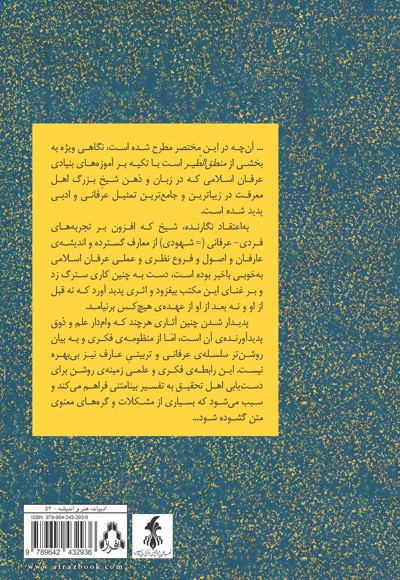 ... آن‌چه در این مختصر مطرح شده است، نگاهی ویژه به
بخشی از منطق‌الطّیر است با تکیه بر آموزه‌های بنیادی
عرفان اسلامی که در زبان و ذهن شیخ بزرگ اهل
معرفت در زیباترین و جامع‌ترین تمثیل عرفانی و ادبی
پدید شده است.
به‌اعتقاد نگارنده، شیخ که افزون بر تجربه‌های
فردی- عرفانی (= شهودی) از معارف گسترده و اندیشه‌ی
عارفان و اصول و فروع نظری و عملی عرفان اسلامی
به‌خوبی باخبر بوده است، دست به چنین کاری سترگ زد
و بر غنای این مکتب بیفزود و اثری پدید آورد که نه قبل
از او و نه بعد از او از عهده‌ی هیچ‌کس برنیامد.
پدیدار شدن چنین آثاری هرچند که وام‌دار علم و ذوق
پدیدآورنده‌ی آن است، امّا از منظومه‌ی فکری و به بیان
روشن‌تر سلسله‌ی عرفانی و تربیتیِ عارف نیز بی‌بهره
نیست. این رابطه‌ی فکری و علمی زمینه‌ی روشن برای
دست‌یابی اهل تحقیق به تفسیر بینامتنی فراهم می‌کند و
سبب می‌شود که بسیاری از مشکلات و گره‌های معنوی
متن گشوده شود...
ادبیات، هنر و اندیشه - ۵۲
ISBN: 978-964-243-293-6
9 789642 432936
افراز
www.afrazbook.com